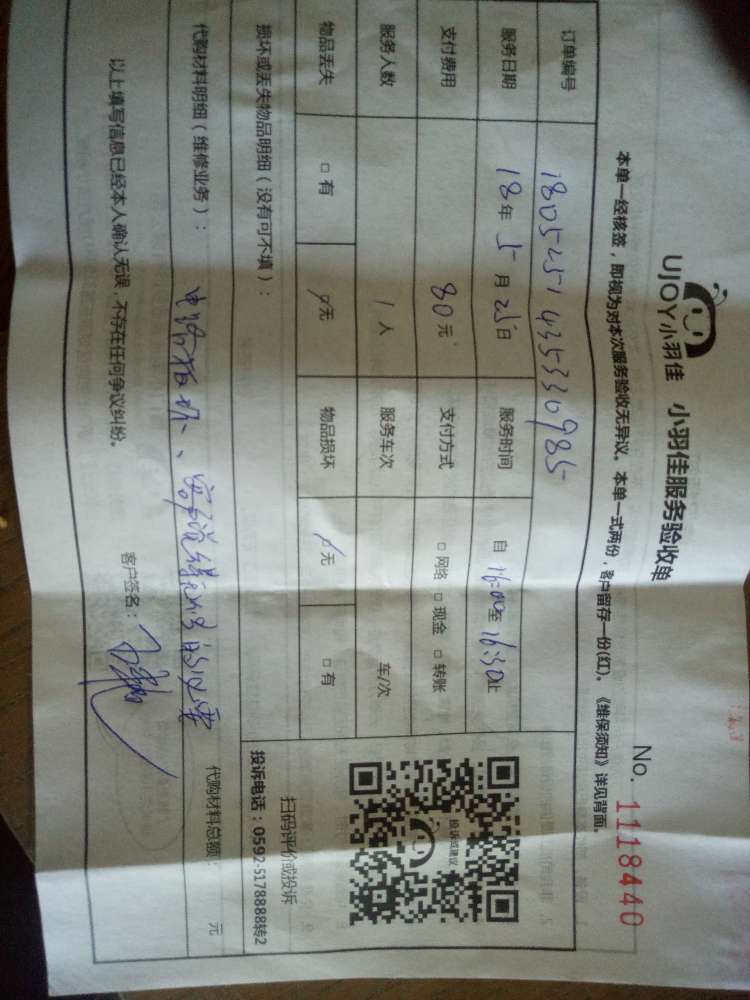 UJOY小羽佳 小羽佳服务验收单
No. 1118440
本单一经核签，即视为对本次服务验收无异议。本单一式两份，客户留存一份(红)。《维保须知》详见背面。
订单编号 1805251435336985
服务日期 18年5月25日 服务时间 自16:00至16:30止
支付费用 80元 支付方式 □网络 □现金 □转账
服务人数 1人 服务车次 车/次
物品丢失 □有 无 物品损坏 无 □有
投诉或建议
扫码评价或投诉
投诉电话：0592-5178888转2
损坏或丢失物品明细（没有可不填）：
代购材料明细（维修业务）： 代购材料总额： 元
以上填写信息已经本人确认无误，不存在任何争议纠纷。 客户签名：